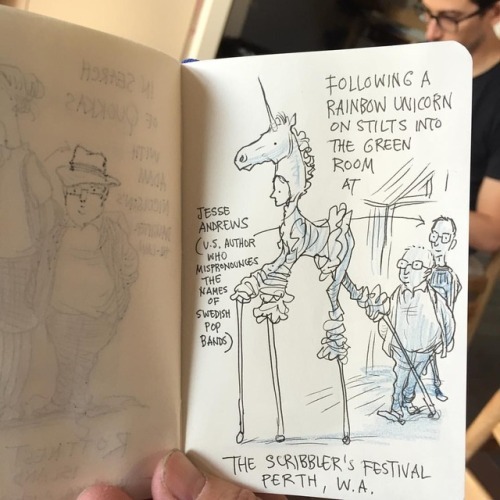 IN SEARCH
OF QUOKKAS
WITH
FOLLOWING A
RAINBOW UNICORN
ON STILTS INTO
THE GREEN
ROOM
AT
JESSE
ANDREWS
(U.S. AUTHOR
WHO
MISPRONOUNCES
THE
NAMES
OF
SWEDISH
POP
BANDS)
THE SCRIBBLER'S FESTIVAL
PERTH, W.A.